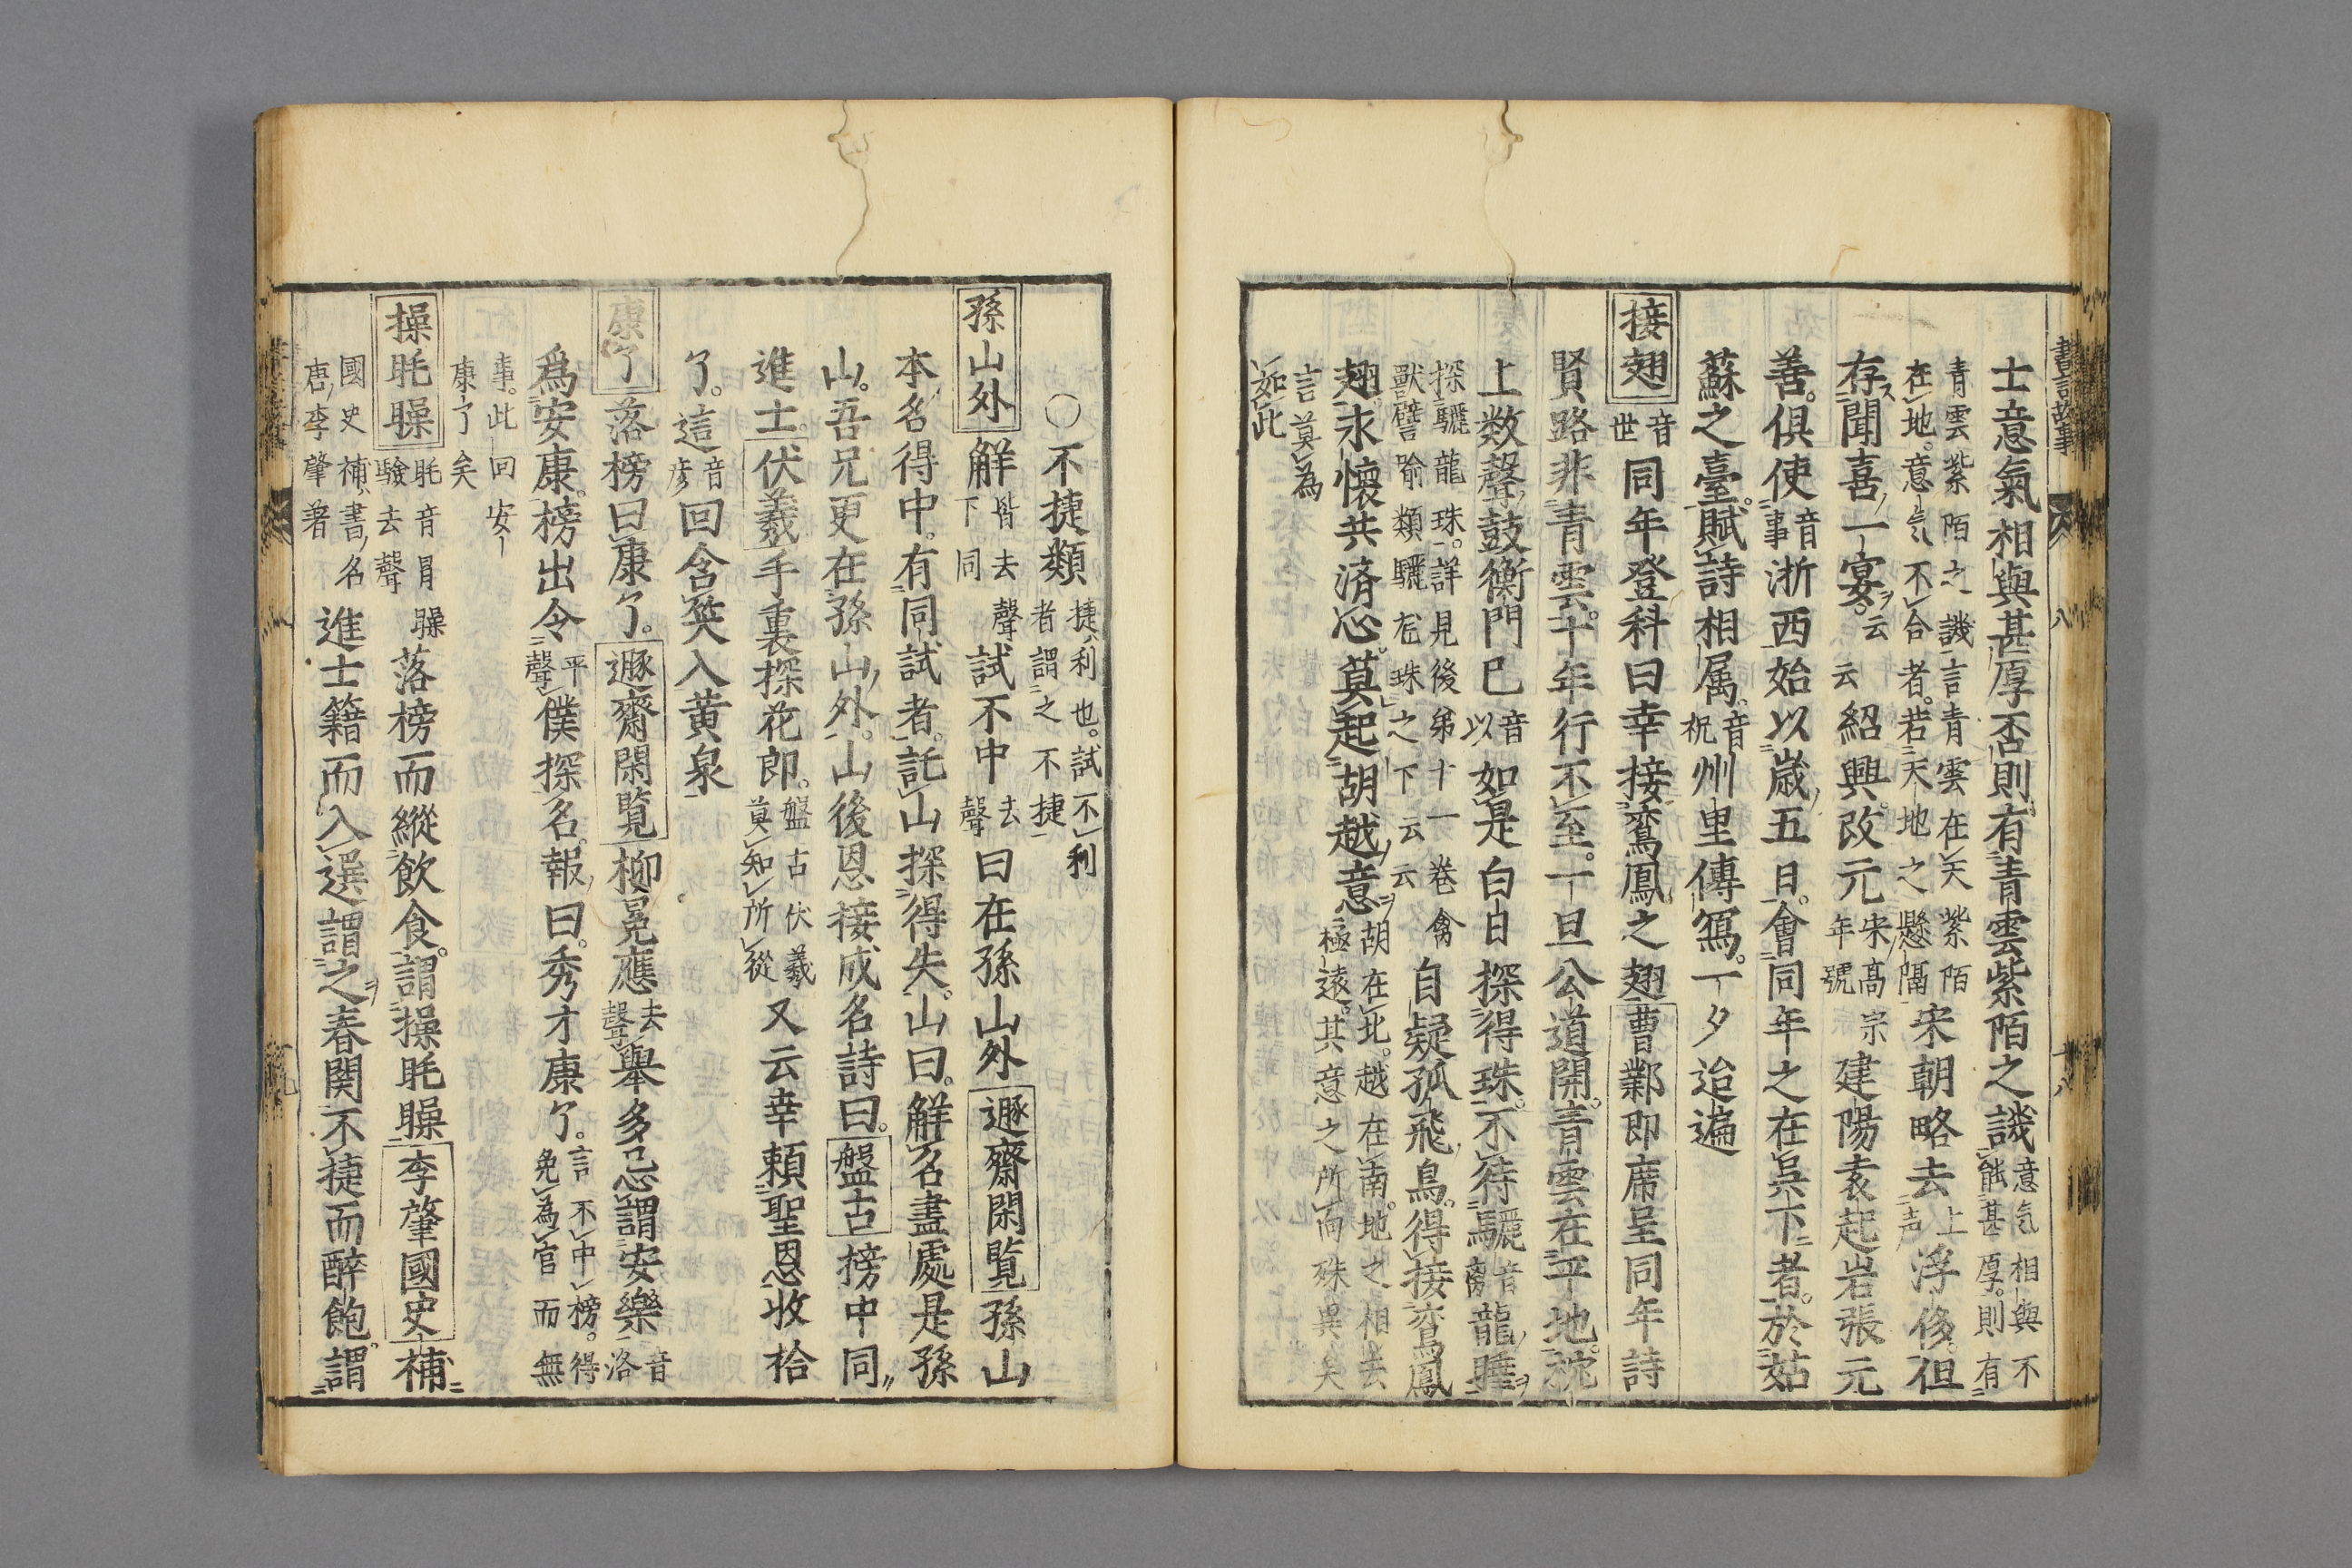 書言故事 八 十八
士意氣相與甚厚否則有青雲紫陌之譏意気相與不能甚厚則有
青雲紫陌之譏言青雲在天紫陌在地意気不合者若天地之懸隔宋朝略去上声浮侈但
存聞喜一宴云云紹興改元宋高宗年號建陽袁起岩張元
善俱使音事浙西始以歳五日會同年之在吳下者於姑
蘇之臺賦詩相属音祝州里傳寫一夕迨遍
接翅音世同年登科曰幸接鸞鳳之翅曹鄴即席呈同年詩
賢路非青雲十年行不至一旦公道開青雲在平地枕
上数聲鼓衡門已音以如是白日探得珠不待驪音离龍睡
探驪龍珠詳見後第十一卷禽獸譬喻類驪龙珠之下云云自疑孤飛鳥得接鸞鳳
翅永懷共済心莫起胡越意胡在北越在南地之相去極遠其意之所向殊異矣
言莫為如此
○不捷類捷利也試不利者謂之不捷
孫山外解皆去聲下同試不中去聲曰在孫山外遯齋閑覧孫山
本名得中有同試者託山探得失山曰解名盡處是孫
山吾兄更在孫山外山後恩接成名詩曰盤古榜中同
進士伏羲手裏探花郎盤古伏羲莫知所從又云幸頼聖恩收拾
了這音彦回含笑入黄泉
康了落榜曰康了遯齋閑覧柳冕應去聲舉多忌謂安樂音洛
爲安康榜出令平聲僕探名報曰秀才康了言不中榜得免為官而無
事此回安康了矣
操眊矂眊音冒矂驗去聲落榜而縱飲食謂操眊矂李肇國史補
國史補書名唐李肇著進士籍而入選謂之春関不捷而醉飽謂